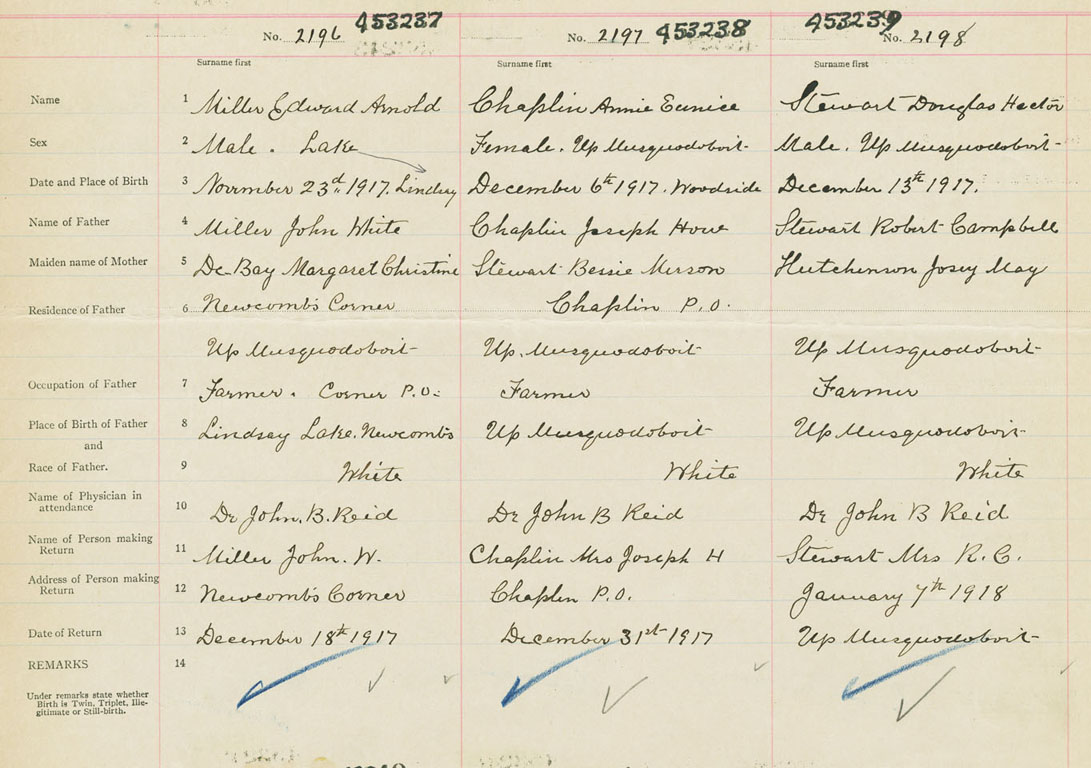 453237 453238 453239
No. 2196 No. 2197 No. 2198
Surname first Surname first Surname first
Name 1 Miller Edward Arnold Chaplin Annie Eunice Stewart Douglas Hector
Sex 2 Male. Lake Female. Up Musquodoboit Male. Up Musquodoboit
Date and Place of Birth 3 November 23d 1917. Lindsay December 6th 1917. Woodside December 13th 1917.
Name of Father 4 Miller John White Chaplin Joseph Howe Stewart Robert Campbell
Maiden name of Mother 5 De-Bay Margaret Christine Stewart Bessie Merson Hutchenson Josey May
Residence of Father 6 Newcombs Corner Chaplin P.O.
Up Musquodoboit Up. Musquodoboit Up Musquodoboit
Occupation of Father 7 Farmer. Corner P.O. Farmer Farmer
Place of Birth of Father 8 Lindsay Lake. Newcombs Up Musquodoboit Up Musquodoboit
and
Race of Father. 9 White White White
Name of Physician in
attendance 10 Dr John. B. Reid Dr John B Reid Dr John B Reid
Name of Person making
Return 11 Miller John. W. Chaplin Mrs Joseph H Stewart Mrs R. C.
Address of Person making
Return 12 Newcombs Corner Chaplin P.O. January 7th 1918
Date of Return 13 December 18th 1917 December 31st 1917 Up Musquodoboit
REMARKS 14
Under remarks state whether
Birth is Twin, Triplet, Ille-
gitimate or Still-birth.